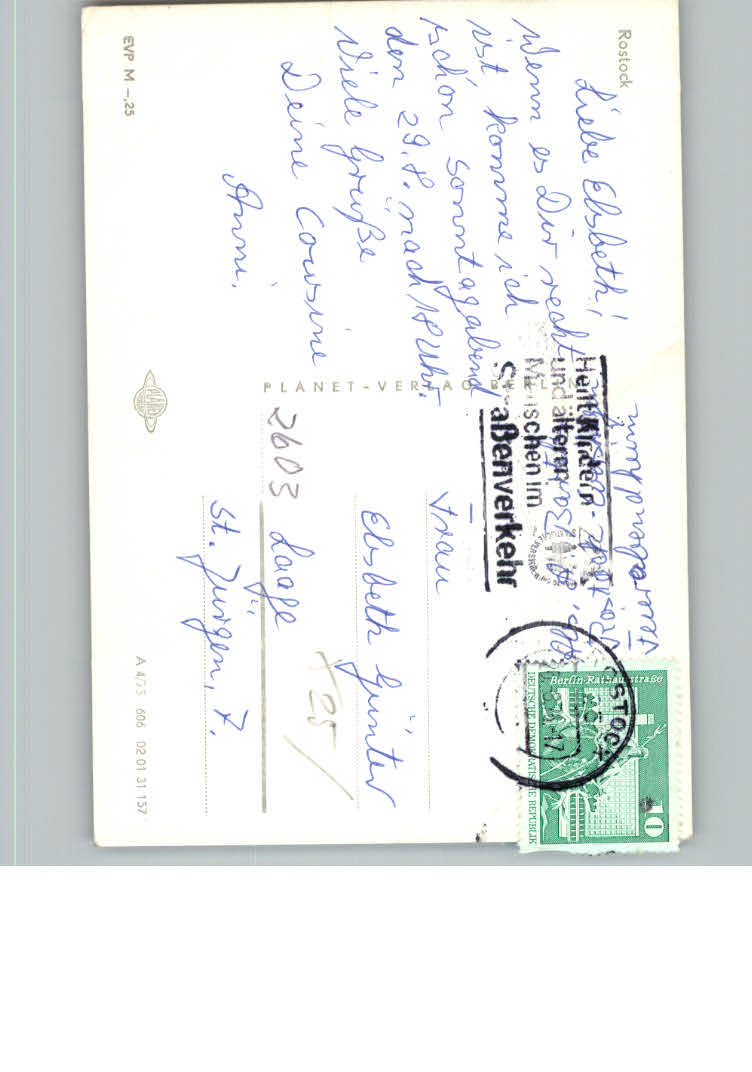 Rostock
Liebe Elsbeth!
Wenn es Dir recht
ist, komme ich
schon Sonntagabend
den 29.8. nach 18 Uhr.
Viele Grüße
Deine Cousine
Anni.
EVP M –,25
PLANET-VERLAG BERLIN
PLANET
Feierabendheim
Helft Kindern
und älteren
Menschen im
Straßenverkehr
ROSTOCK
Berlin-Rathausstraße
DEUTSCHE DEMOKRATISCHE REPUBLIK
10
Frau
Elsbeth Günter
2603 Laage
St. Jürgen, 7.
+25
A 4/35 606 02 01 31 157